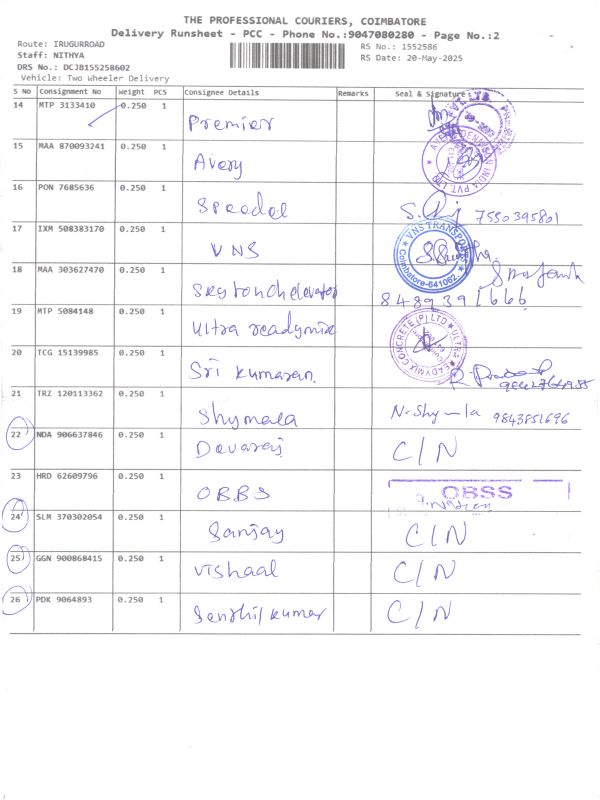 THE PROFESSIONAL COURIERS, COIMBATORE
Delivery Runsheet - PCC - Phone No.:9047080280 - Page No.:2
Route: IRUGURROAD
Staff: NITHYA
DRS No.: DCJB155258602
Vehicle: Two Wheeler Delivery
RS No.: 1552586
RS Date: 20-May-2025
S No Consignment No Weight PCS Consignee Details Remarks Seal & Signature
14 MTP 3133410 0.250 1 Premier
15 MAA 870093241 0.250 1 Avery
16 PON 7685636 0.250 1 Speedel 7550395801
17 IXM 508383170 0.250 1 VNS VNS TRANSPORTS Coimbatore-641062.
18 MAA 303627470 0.250 1 8489391666
19 MTP 5084148 0.250 1 Ultra readymix ULTRA READYMIX CONCRETE (P) LTD
20 TCG 15139985 0.250 1 Sri kumaran.
21 TRZ 120113362 0.250 1 Shymala N. Shymala 9843851696
22 NDA 906637846 0.250 1 Devaraj C/N
23 HRD 62609796 0.250 1 OBBS OBSS
24 SLM 370302054 0.250 1 Sanjay C/N
25 GGN 900868415 0.250 1 Vishaal C/N
26 PDK 9064893 0.250 1 Senthilkumar C/N